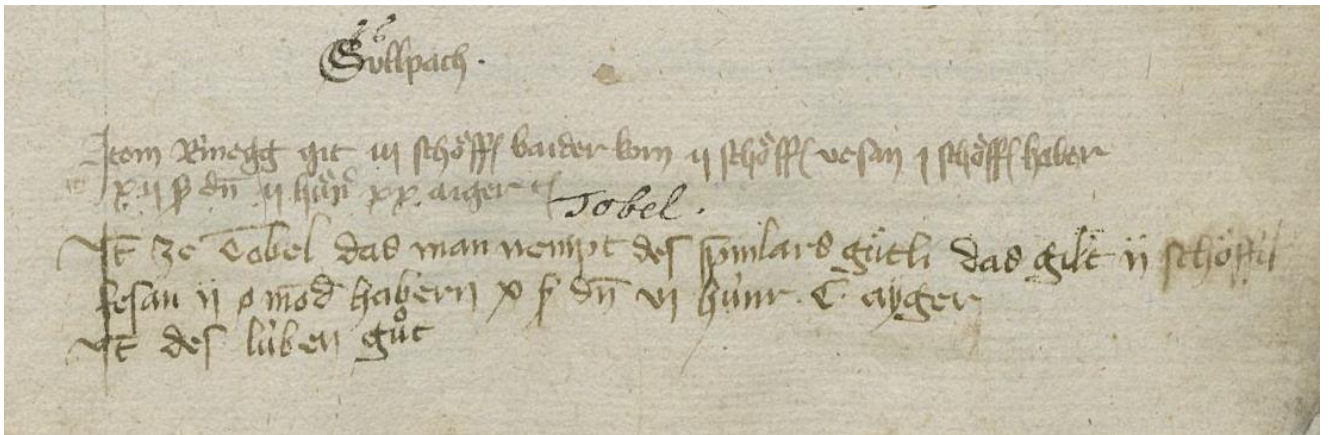 Sulpach.
Item Rinegg git iij schöff baider korn ij schöff vesan j schöff haber
x ij ß dn ij hünr xx. aiger
Tobel.
It ze Tobel das man nempt des spinlars gütli das gilt ij schöffel
fesan ij mod habern x ß dn vi hünr. C. ayger
It des lüben guot